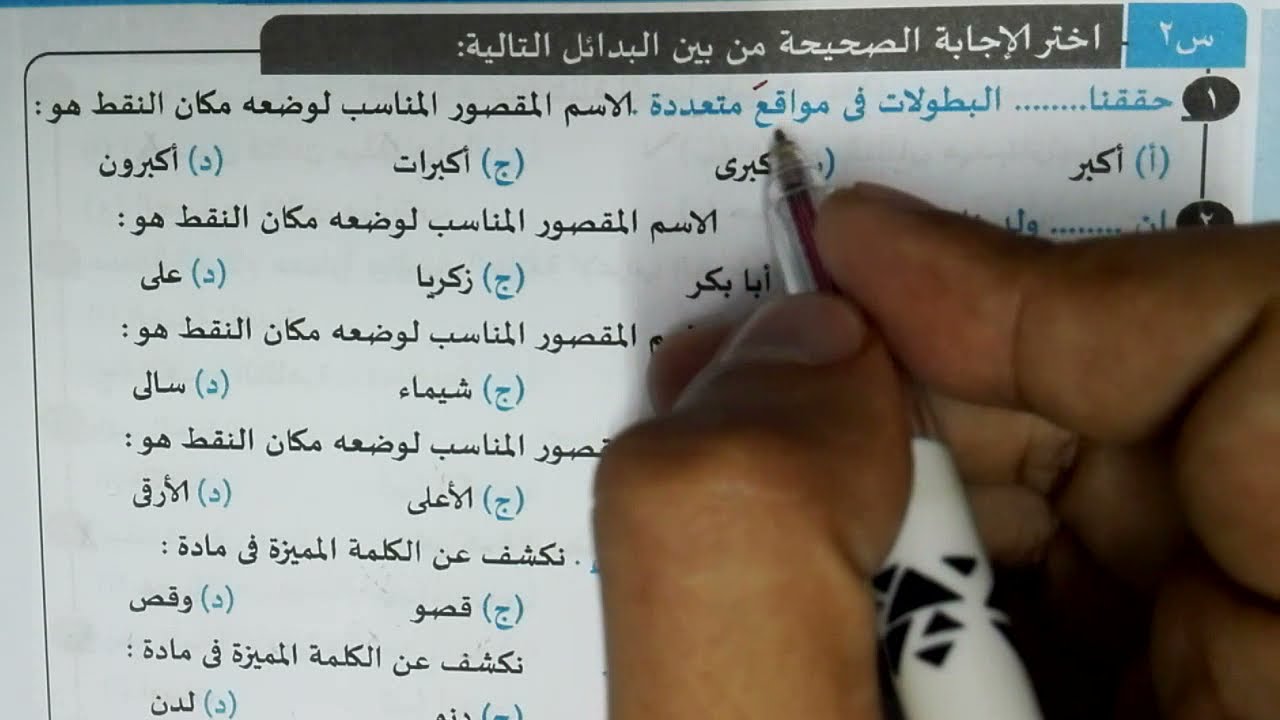 س٢ اختر الإجابة الصحيحة من بين البدائل التالية:
١ حققنا........ البطولات فى مواقعَ متعددة . الاسم المقصور المناسب لوضعه مكان النقط هو :
(أ) أكبر كبرى (ج) أكبرات (د) أكبرون
٢ إن ........ الاسم المقصور المناسب لوضعه مكان النقط هو :
أبا بكر (ج) زكريا (د) على
المقصور المناسب لوضعه مكان النقط هو :
(ج) شيماء (د) سالى
المناسب لوضعه مكان النقط هو :
(ج) الأعلى (د) الأرقى
. نكشف عن الكلمة المميزة فى مادة :
(ج) قصو (د) وقص
نكشف عن الكلمة المميزة فى مادة :
(ج) دنو (د) لدن